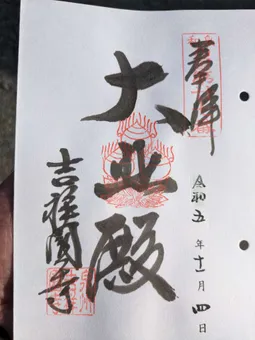 奉拝
大悲殿
吉祥園寺
令和五年十一月四日